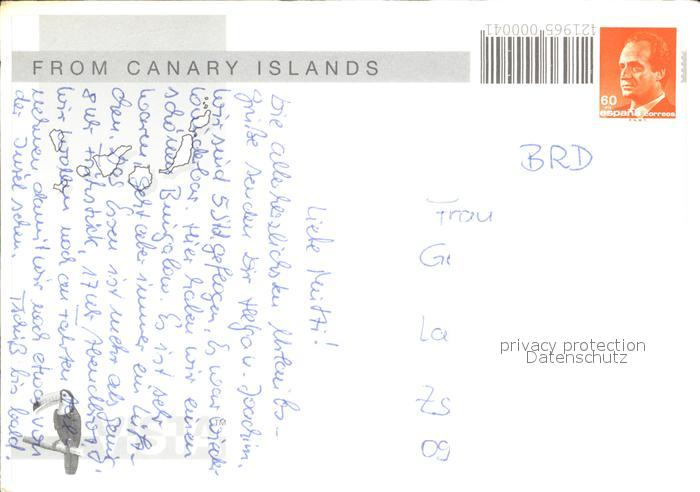 FROM CANARY ISLANDS
421965 000041
60
españa correos
BRD
Frau
G
La
ZS
09
privacy protection
Datenschutz
Liebe Mutti!
Die allerherzlichsten Urlaubs-
grüße senden Dir Helga u. Joachim.
Wir sind 5 Std. geflogen. Es war wieder
wunderbar. Hier haben wir einen
schönen Bungalow. Es ist sehr
warm, geht aber immer ein Lüft-
chen. Das Essen ist mehr als genug,
8 Uhr Frühstück, 17 Uhr Abendbrot,
wir wollen noch an Fahrten teil-
nehmen damit wir noch etwas von
der Insel sehn. Tschüß bis bald!
VISTA